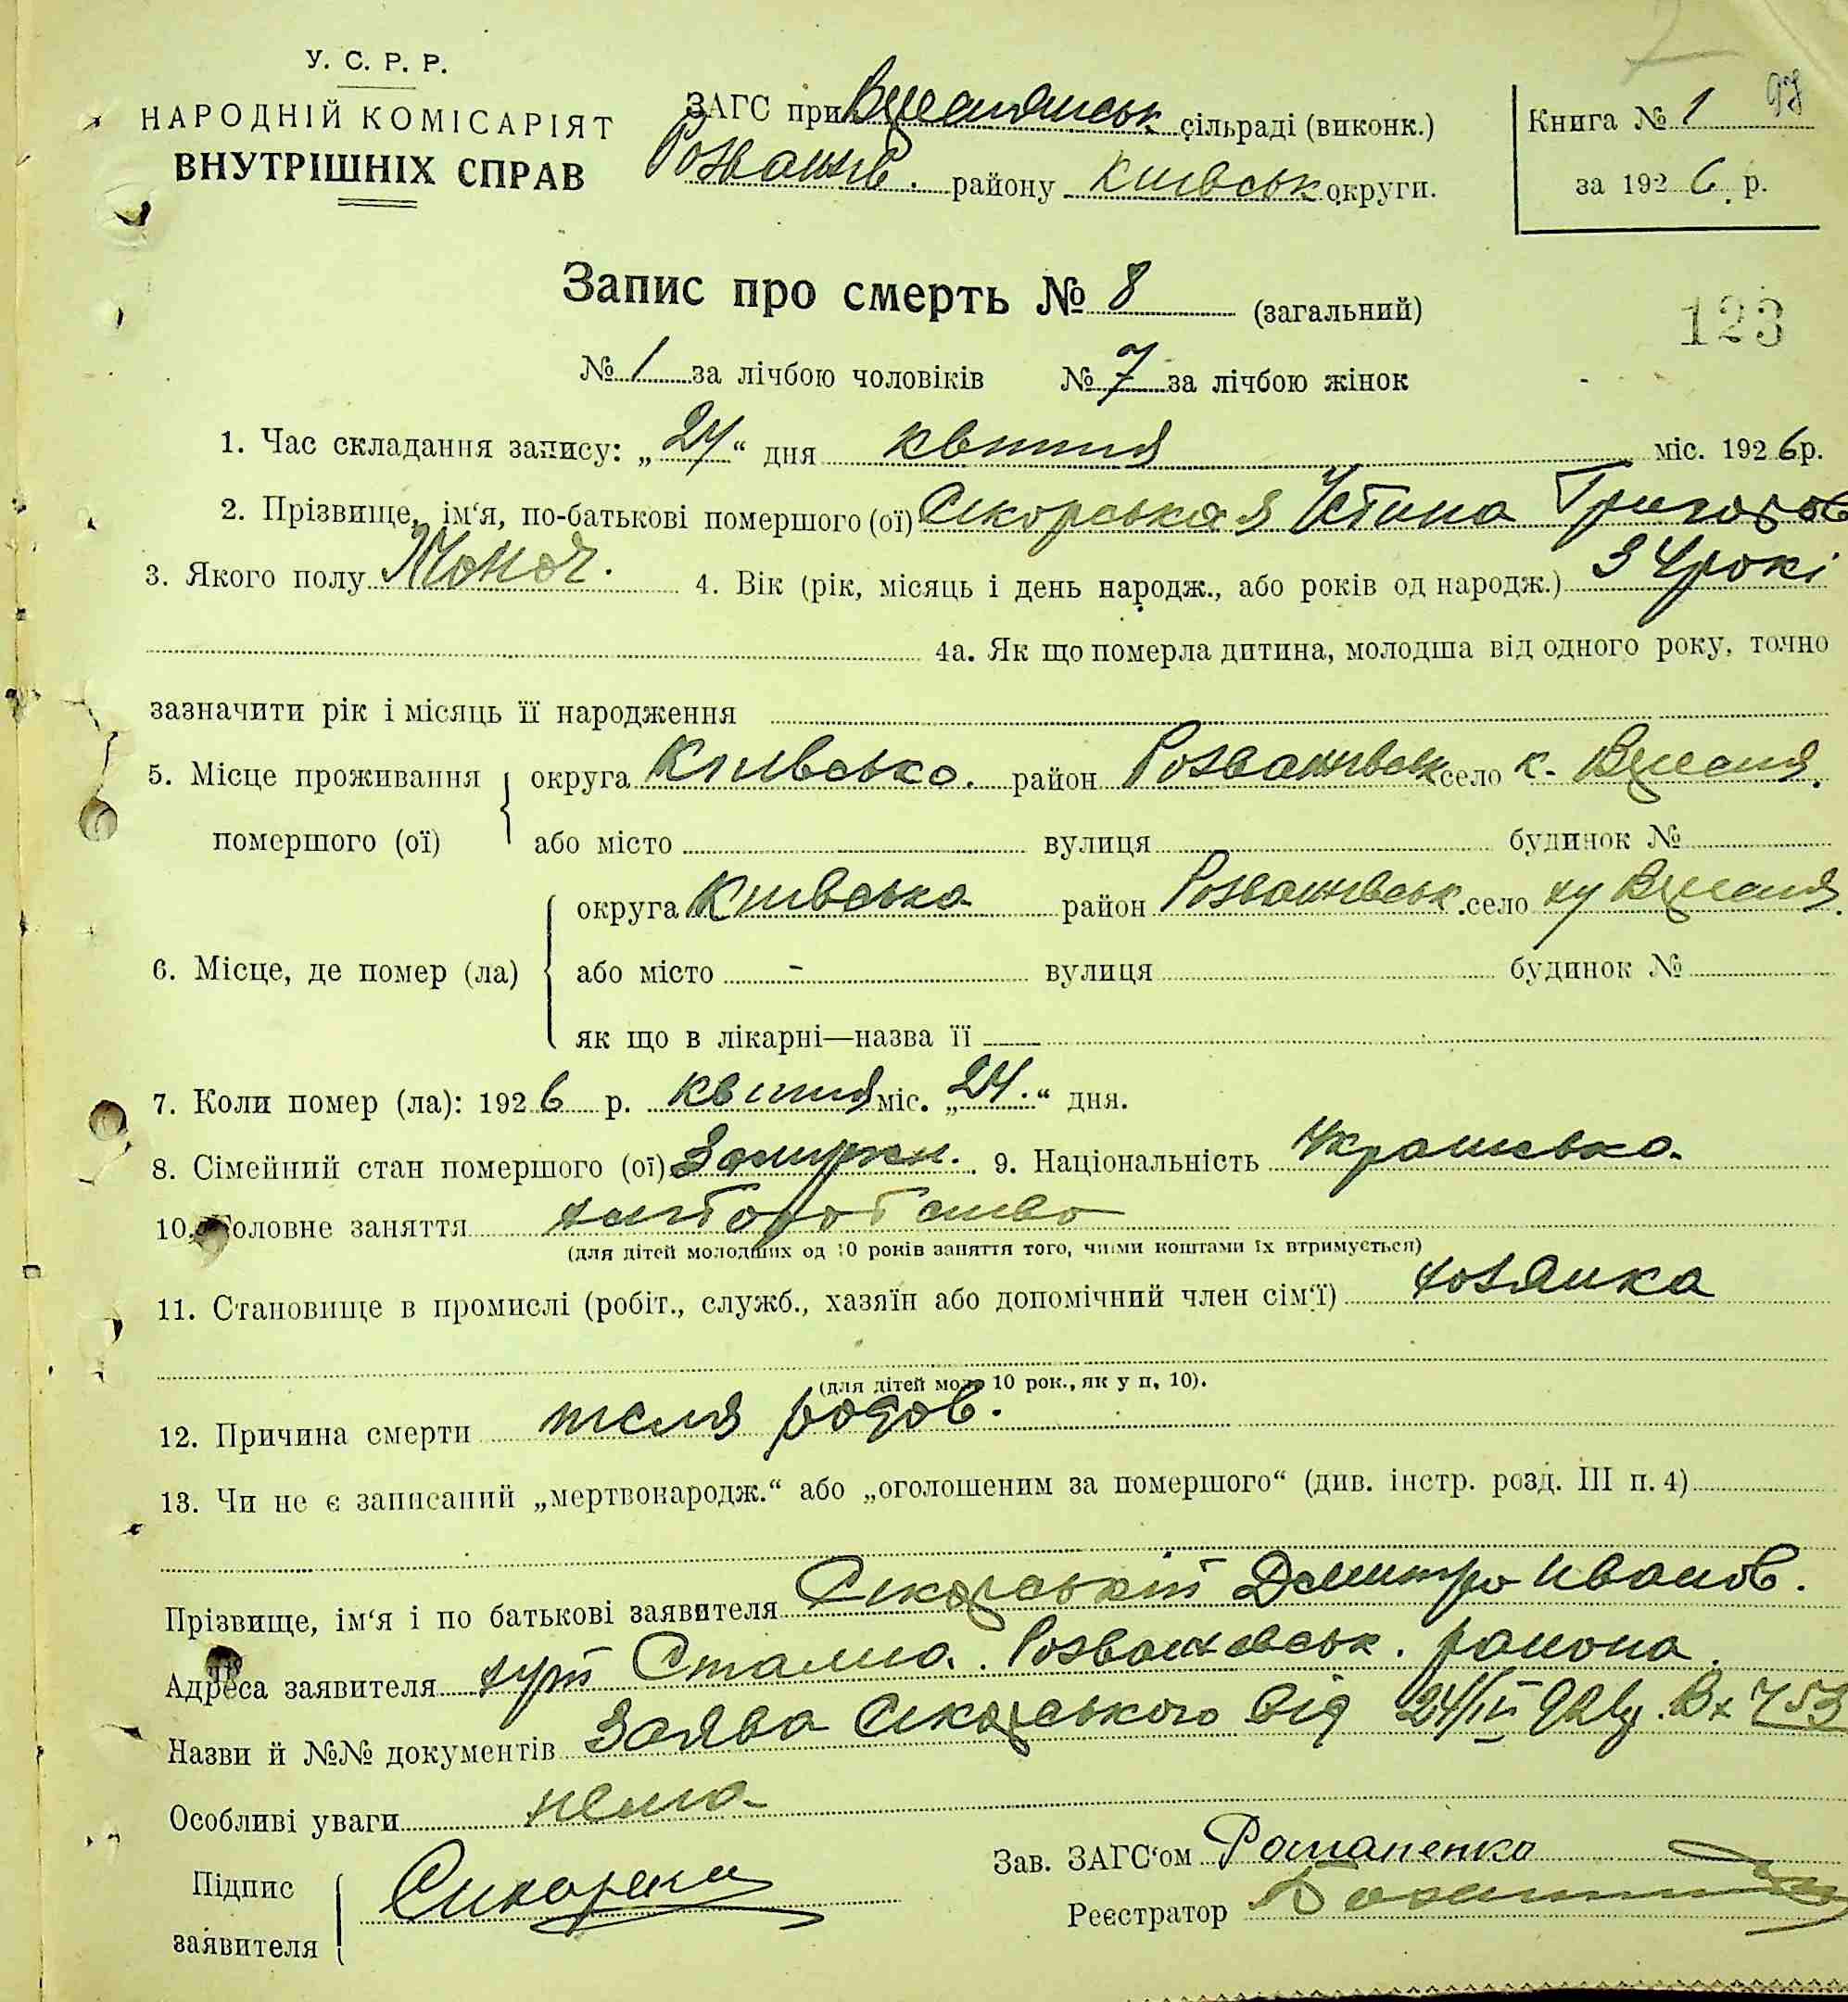 У. С. Р. Р.
НАРОДНІЙ КОМІСАРІЯТ
ВНУТРІШНІХ СПРАВ
ЗАГС при сільраді (виконк.)
Розважів. району Київськ округи.
Книга № 1 97
за 1926 р.
Запис про смерть № 8 (загальний)
123
№ 1 за лічбою чоловіків № 7 за лічбою жінок
1. Час складання запису: „24“ дня квітня міс. 1926 р.
2. Прізвище, ім‘я, по-батькові помершого (ої) Сікорська Устина Григоров
3. Якого полу Жоноч. 4. Вік (рік, місяць і день народж., або років од народж.) 34 рокі
4а. Як що померла дитина, молодша від одного року, точно
зазначити рік і місяць її народження
5. Місце проживання помершого (ої) округа Київсько. район Розважівськ село к.
або місто вулиця будинок №
6. Місце, де помер (ла) округа Київська район Розважевськ. село ху
або місто - вулиця будинок №
як що в лікарні—назва її
7. Коли помер (ла): 1926 р. квітня міс. „24.“ дня.
8. Сімейний стан помершого (ої) Замужн. 9. Національність Українська.
10. Головне заняття хліборобство
(для дітей молодших од 10 років заняття того, чиїми коштами їх втримується)
11. Становище в промислі (робіт., служб., хазяїн або допомічний член сім‘ї) хозяйка
(для дітей молод. 10 рок., як у п. 10).
12. Причина смерти після родов.
13. Чи не є записаний „мертвонародж.“ або „оголошеним за помершого“ (див. інстр. розд. III п. 4)
Прізвище, ім‘я і по батькові заявителя Сікорській Дмитро Иванов.
Адреса заявителя хут Розважевськ. района.
Назви й №№ документів Заява Сікорського від 24/IV 926 Вх 753
Особливі уваги нема
Підпис заявителя
Зав. ЗАГС‘ом Романенко
Реєстратор